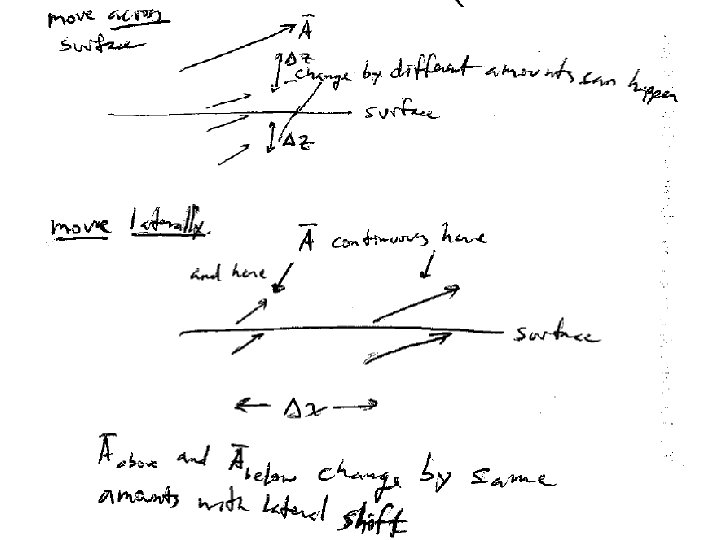 move across
surface
A̅
Δz
change by different amounts can happen
surface
Δz
move laterally
A̅ continuous here
and here
surface
← Δx →
A̅above and A̅below change by same
amounts with lateral shift